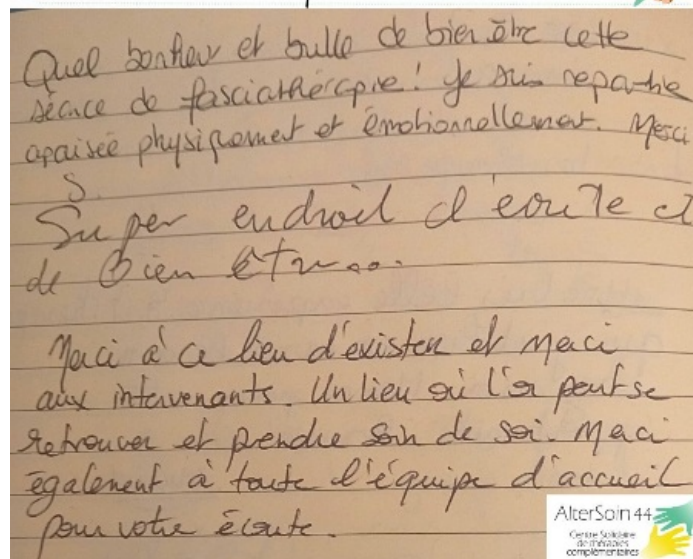 Quel bonheur et bulle de bien être cette
séance de fasciathérapie! Je suis repartie
apaisée physiquement et émotionnellement. Merci
S.
Super endroit d'écoute et
de Bien être...
Merci à ce lieu d'exister et merci
aux intervenants. Un lieu où l'on peut se
retrouver et prendre soin de soi. Merci
également à toute l'équipe d'accueil
pour votre écoute.
AlterSoin 44
Centre Solidaire
de thérapies
complémentaires